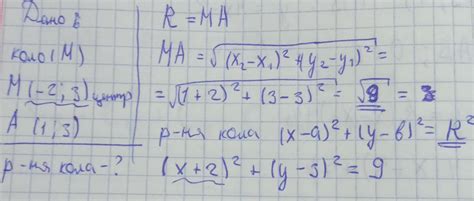 Дано:
коло (M)
M (-2; 3) центр
A (1; 3)
р-ня кола - ?
R = MA
MA = √((x₂-x₁)² + (y₂-y₁)²) =
= √((1+2)² + (3-3)²) = √9 = 3
р-ня кола (x-a)² + (y-b)² = R²
(x+2)² + (y-3)² = 9